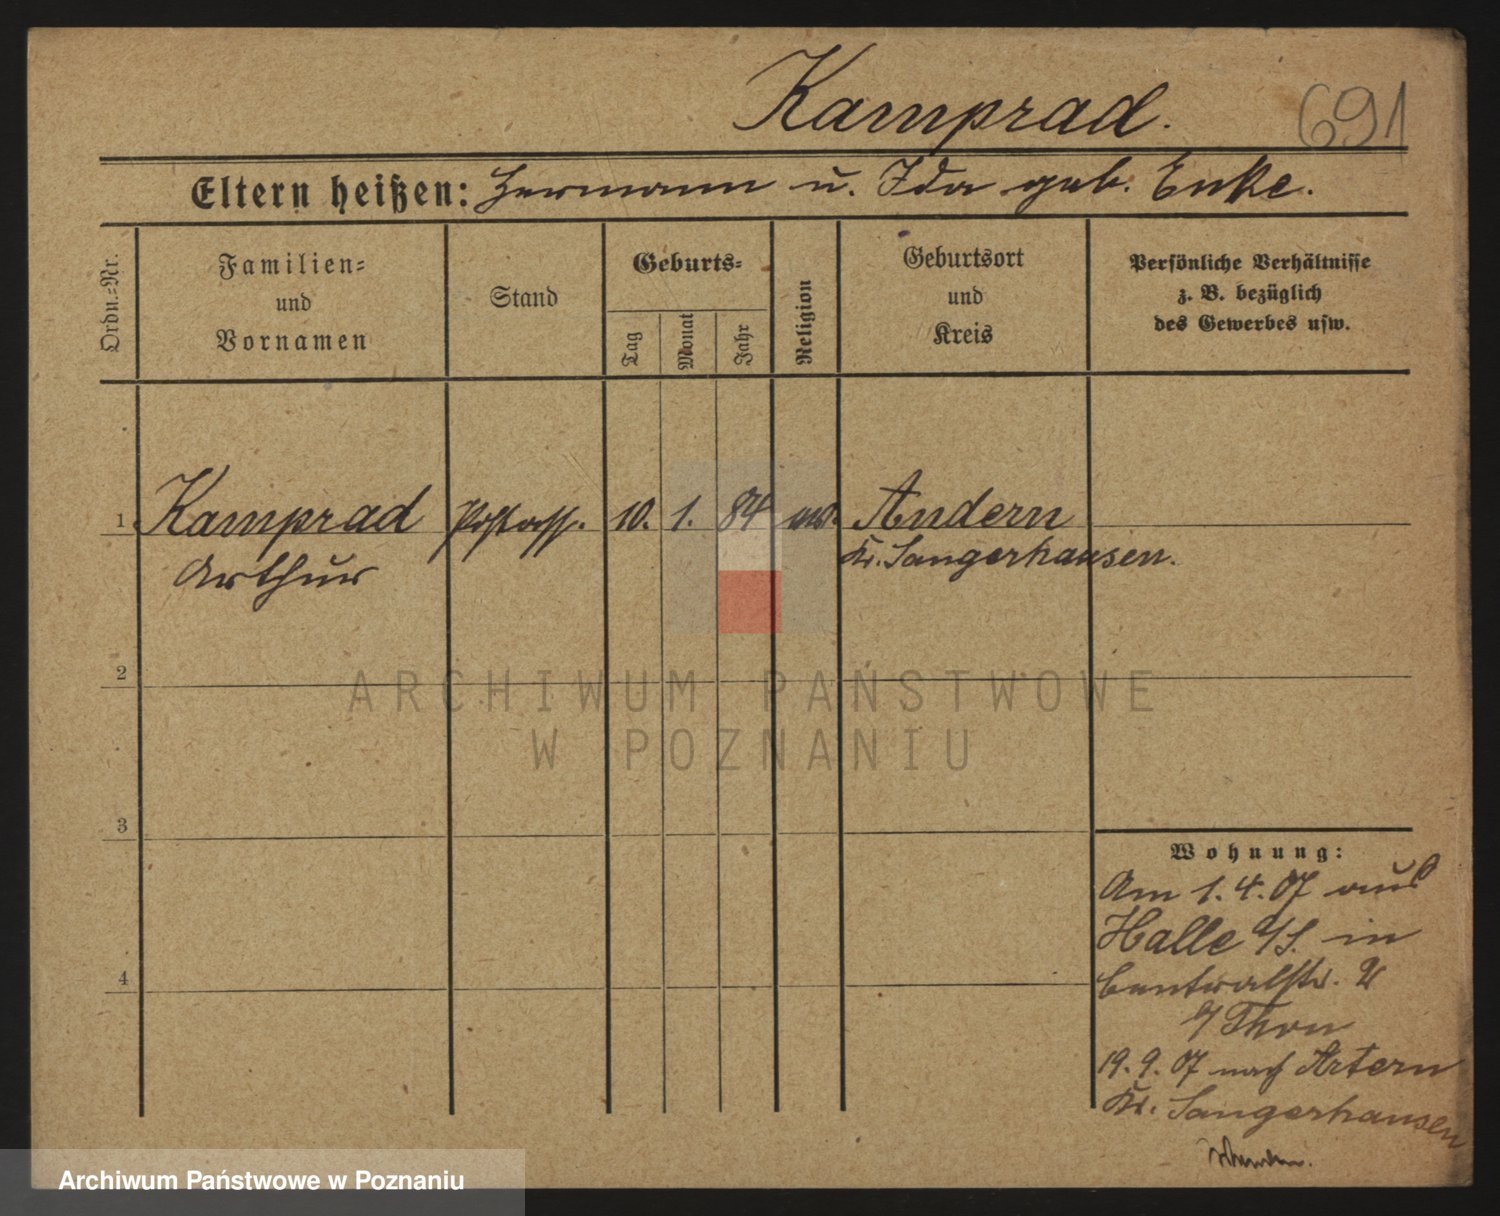 Kamprad.
691
Eltern heißen: Hermann u. Ida geb. Enke.
Ordn.-Nr.
Familien-
und
Vornamen
Stand
Geburts-
Tag
Monat
Jahr
Religion
Geburtsort
und
Kreis
Persönliche Verhältnisse
z. B. bezüglich
des Gewerbes usw.
1 Kamprad Postass. 10. 1. 84 ev. Andern
Arthur Kr. Sangerhausen.
2
3
4
Wohnung:
Am 1.4.07 aus
Halle a/S. in
Centralstr. 2
b/ Thon
19.9.07 nach Artern
Kr. Sangerhausen
ARCHIWUM PAŃSTWOWE
W POZNANIU
Archiwum Państwowe w Poznaniu